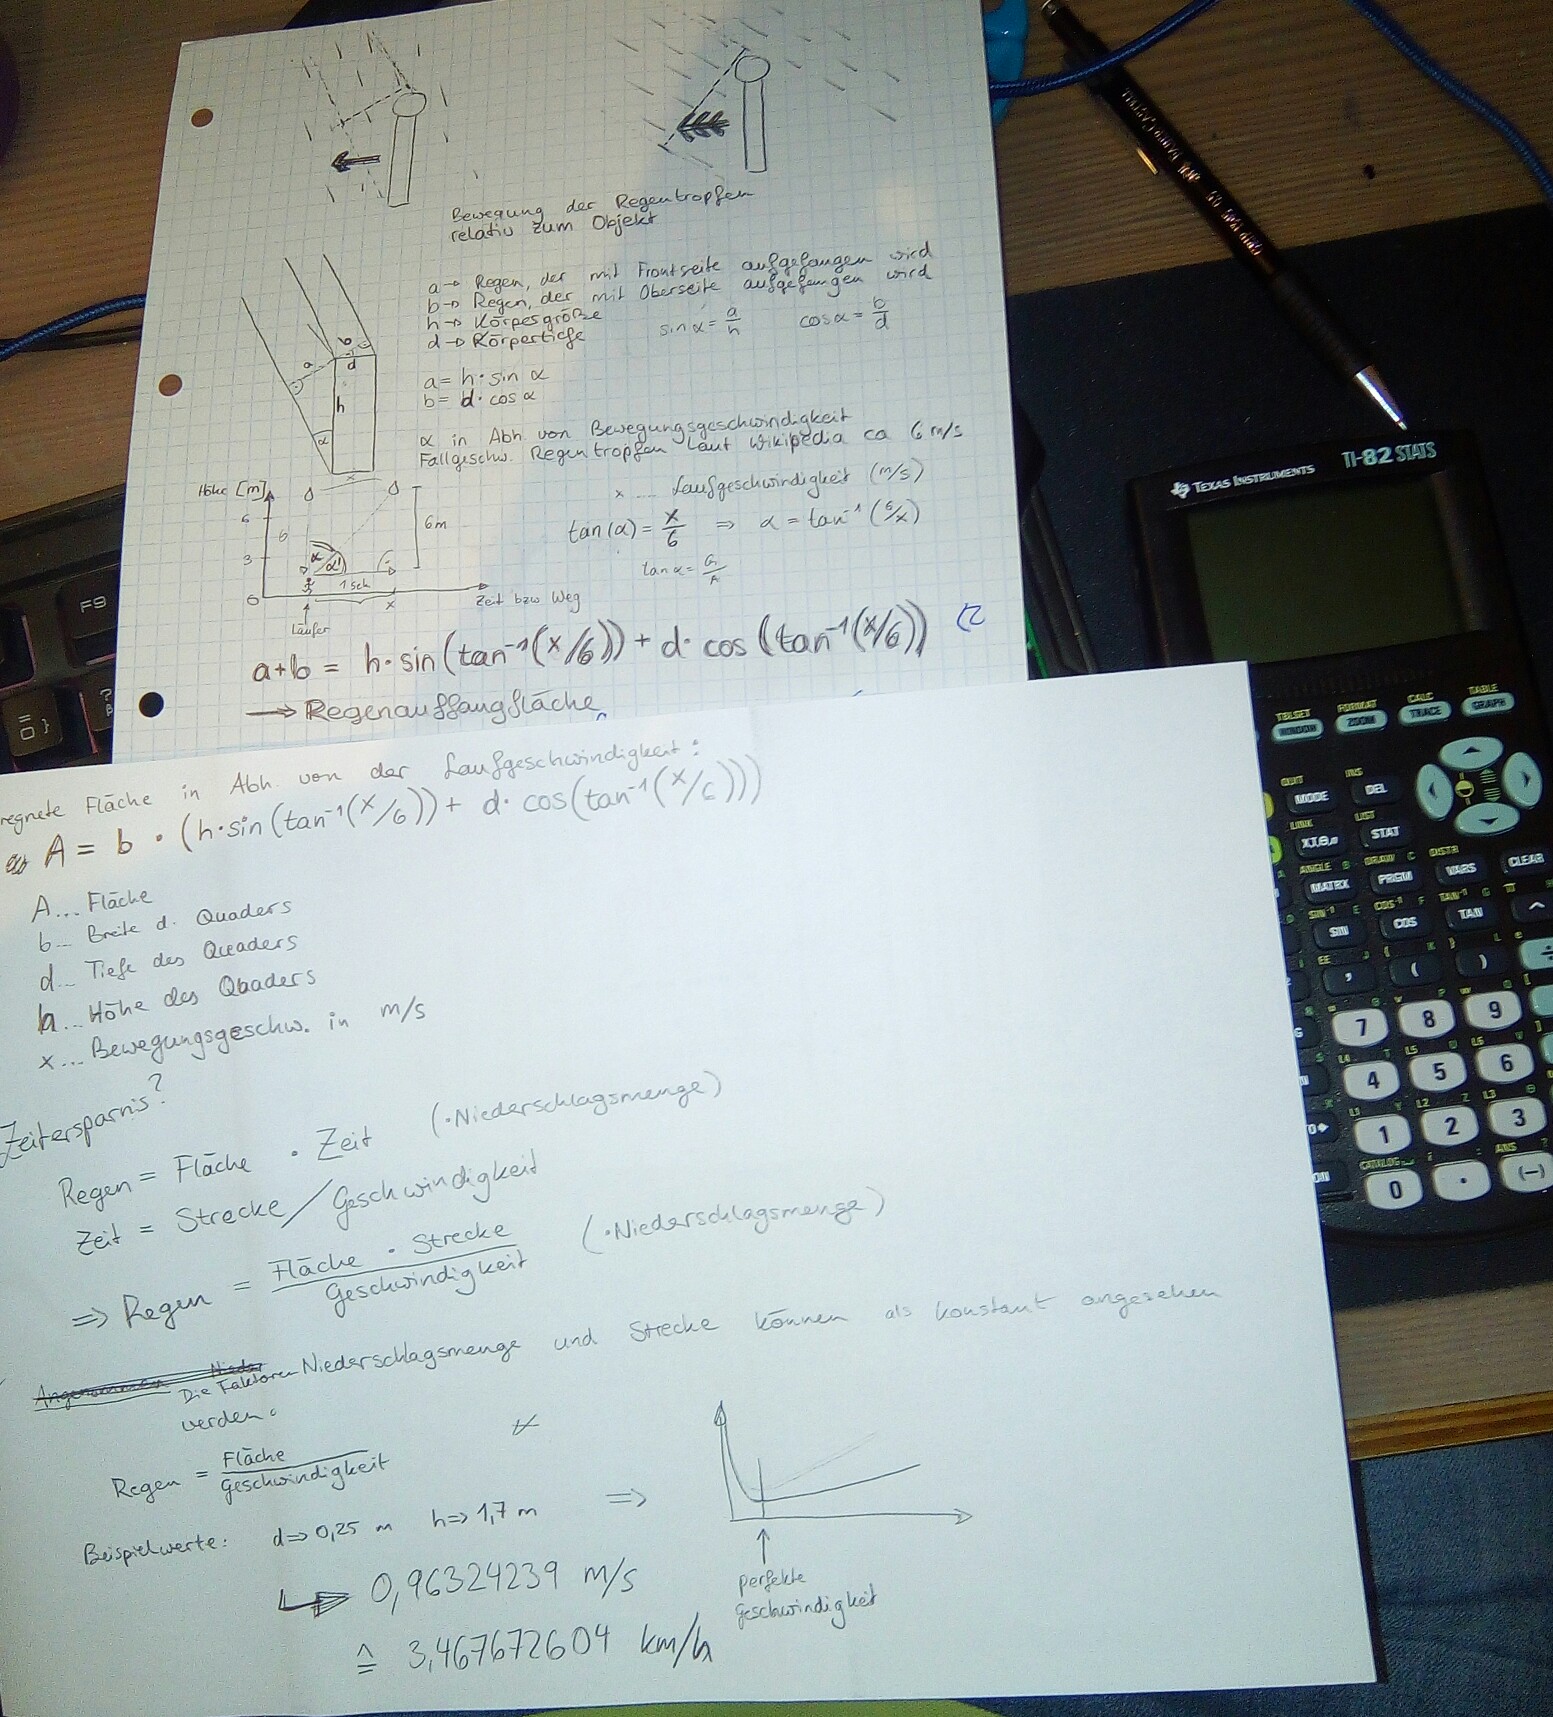 Bewegung der Regentropfen
relativ zum Objekt
a → Regen, der mit Frontseite aufgefangen wird
b → Regen, der mit Oberseite aufgefangen wird
h → Körpergröße
d → Körpertiefe
sin α = a/h
cos α = b/d
a = h · sin α
b = d · cos α
a
b
d
h
α
x
α in Abh. von Bewegungsgeschwindigkeit
Fallgeschw. Regentropfen laut Wikipedia ca 6 m/s
x .... Laufgeschwindigkeit (m/s)
tan(α) = x/6 ⇒ α = tan⁻¹ (6/x)
tan α = G/A
Höhe [m]
6
3
0
6
6m
α
α'
1 sek
x
Zeit bzw Weg
Läufer
a+b = h·sin(tan⁻¹(x/6)) + d· cos (tan⁻¹(x/6))
→ Regenauffangfläche
regnete Fläche in Abh. von der Laufgeschwindigkeit:
A = b · (h·sin(tan⁻¹(x/6)) + d· cos(tan⁻¹(x/6)))
A... Fläche
b... Breite d. Quaders
d... Tiefe des Quaders
h... Höhe des Quaders
x... Bewegungsgeschw. in m/s
Zeitersparnis?
Regen = Fläche · Zeit (·Niederschlagsmenge)
Zeit = Strecke / Geschwindigkeit
⇒ Regen = Fläche · Strecke / Geschwindigkeit (·Niederschlagsmenge)
Die Faktoren Niederschlagsmenge und Strecke können als konstant angesehen
werden.
Regen = Fläche / Geschwindigkeit
Beispielwerte: d⇒0,25 m h⇒1,7 m ⇒
0,96324239 m/s
≙ 3,467672604 km/h
perfekte
Geschwindigkeit
TEXAS INSTRUMENTS TI-82 STATS
TBLSET FORMAT CALC TABLE
WINDOW ZOOM TRACE GRAPH
QUIT INS
MODE DEL
LINK LIST
X,T,Θ,n STAT
ANGLE B DRAW C DISTR
MATRX PRGM VARS CLEAR
SIN⁻¹ E COS⁻¹ F TAN⁻¹ G π H
SIN COS TAN ^
EE J { K } L e
, ( ) ÷
7 8 9
L4 L5 L6
4 5 6
L1 L2 L3
1 2 3
CATALOG : ANS ?
0 . (-)
F9